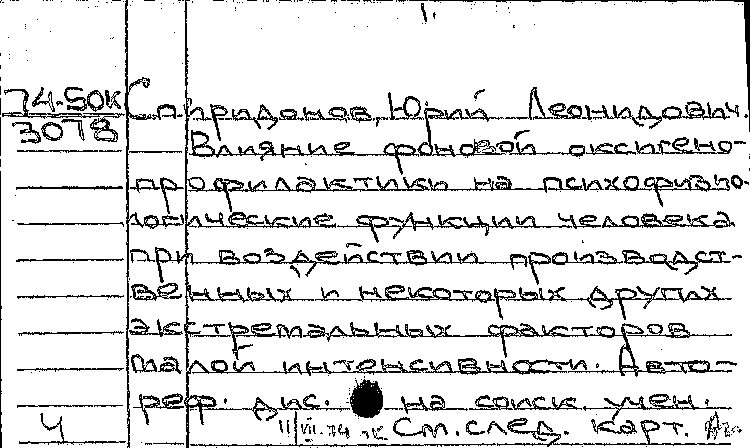 1.
74-50к Спиридонов, Юрий Леонидович.
3078 Влияние фоновой оксигено-
профилактики на психофизио-
логические функции человека
при воздействии производст-
венных и некоторых других
экстремальных факторов
малой интенсивности. Авто-
реф. дис. на соиск. учен.
4 См. след. карт.